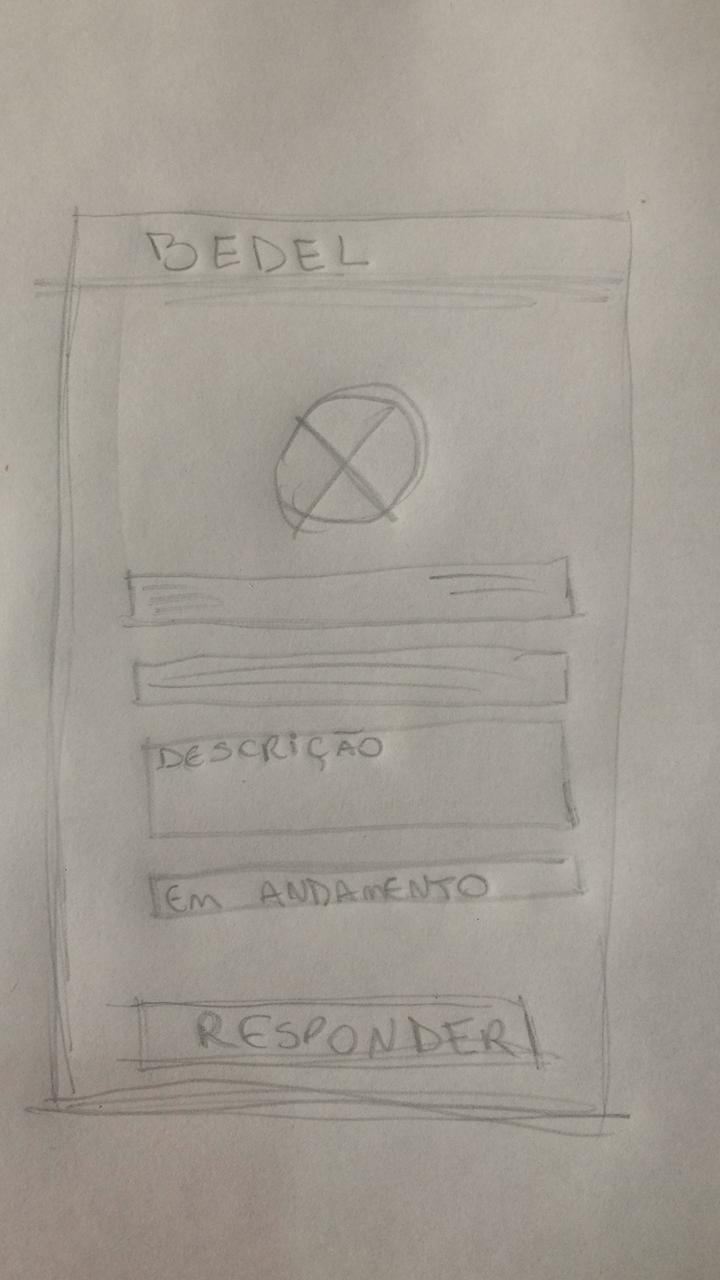 BEDEL
DESCRIÇÃO
EM ANDAMENTO
RESPONDER